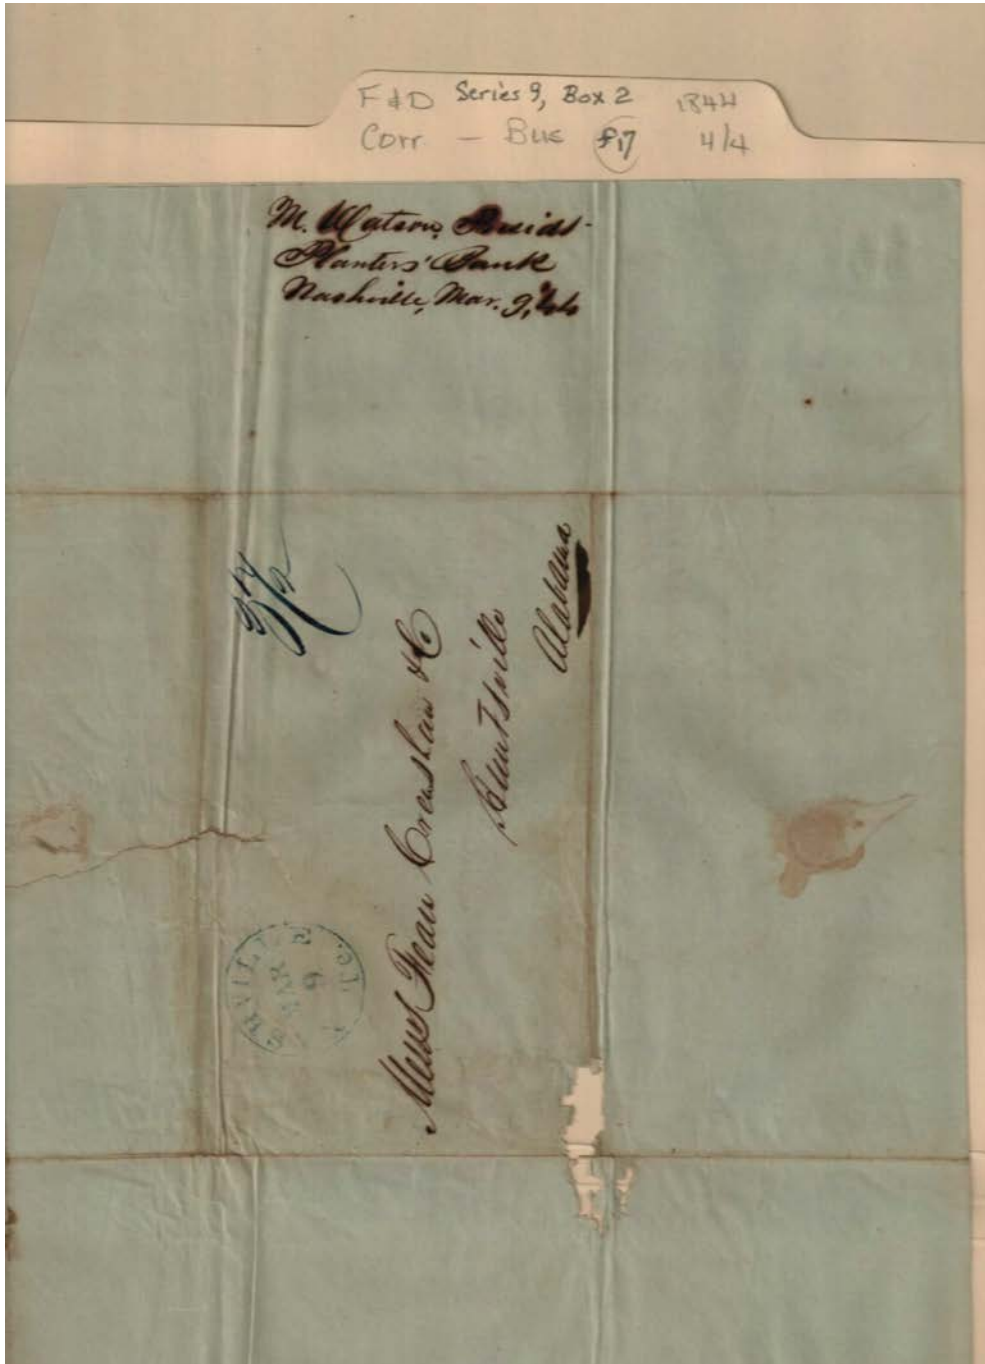 F & D Series 9, Box 2 1844
Corr. - Bus f17 4/4
M. Watson, Presidt.
Planters' Bank
Nashville, Mar. 9, '44
Messrs Fearn Crenshaw & Co
Huntsville
Alabama
MAR
9